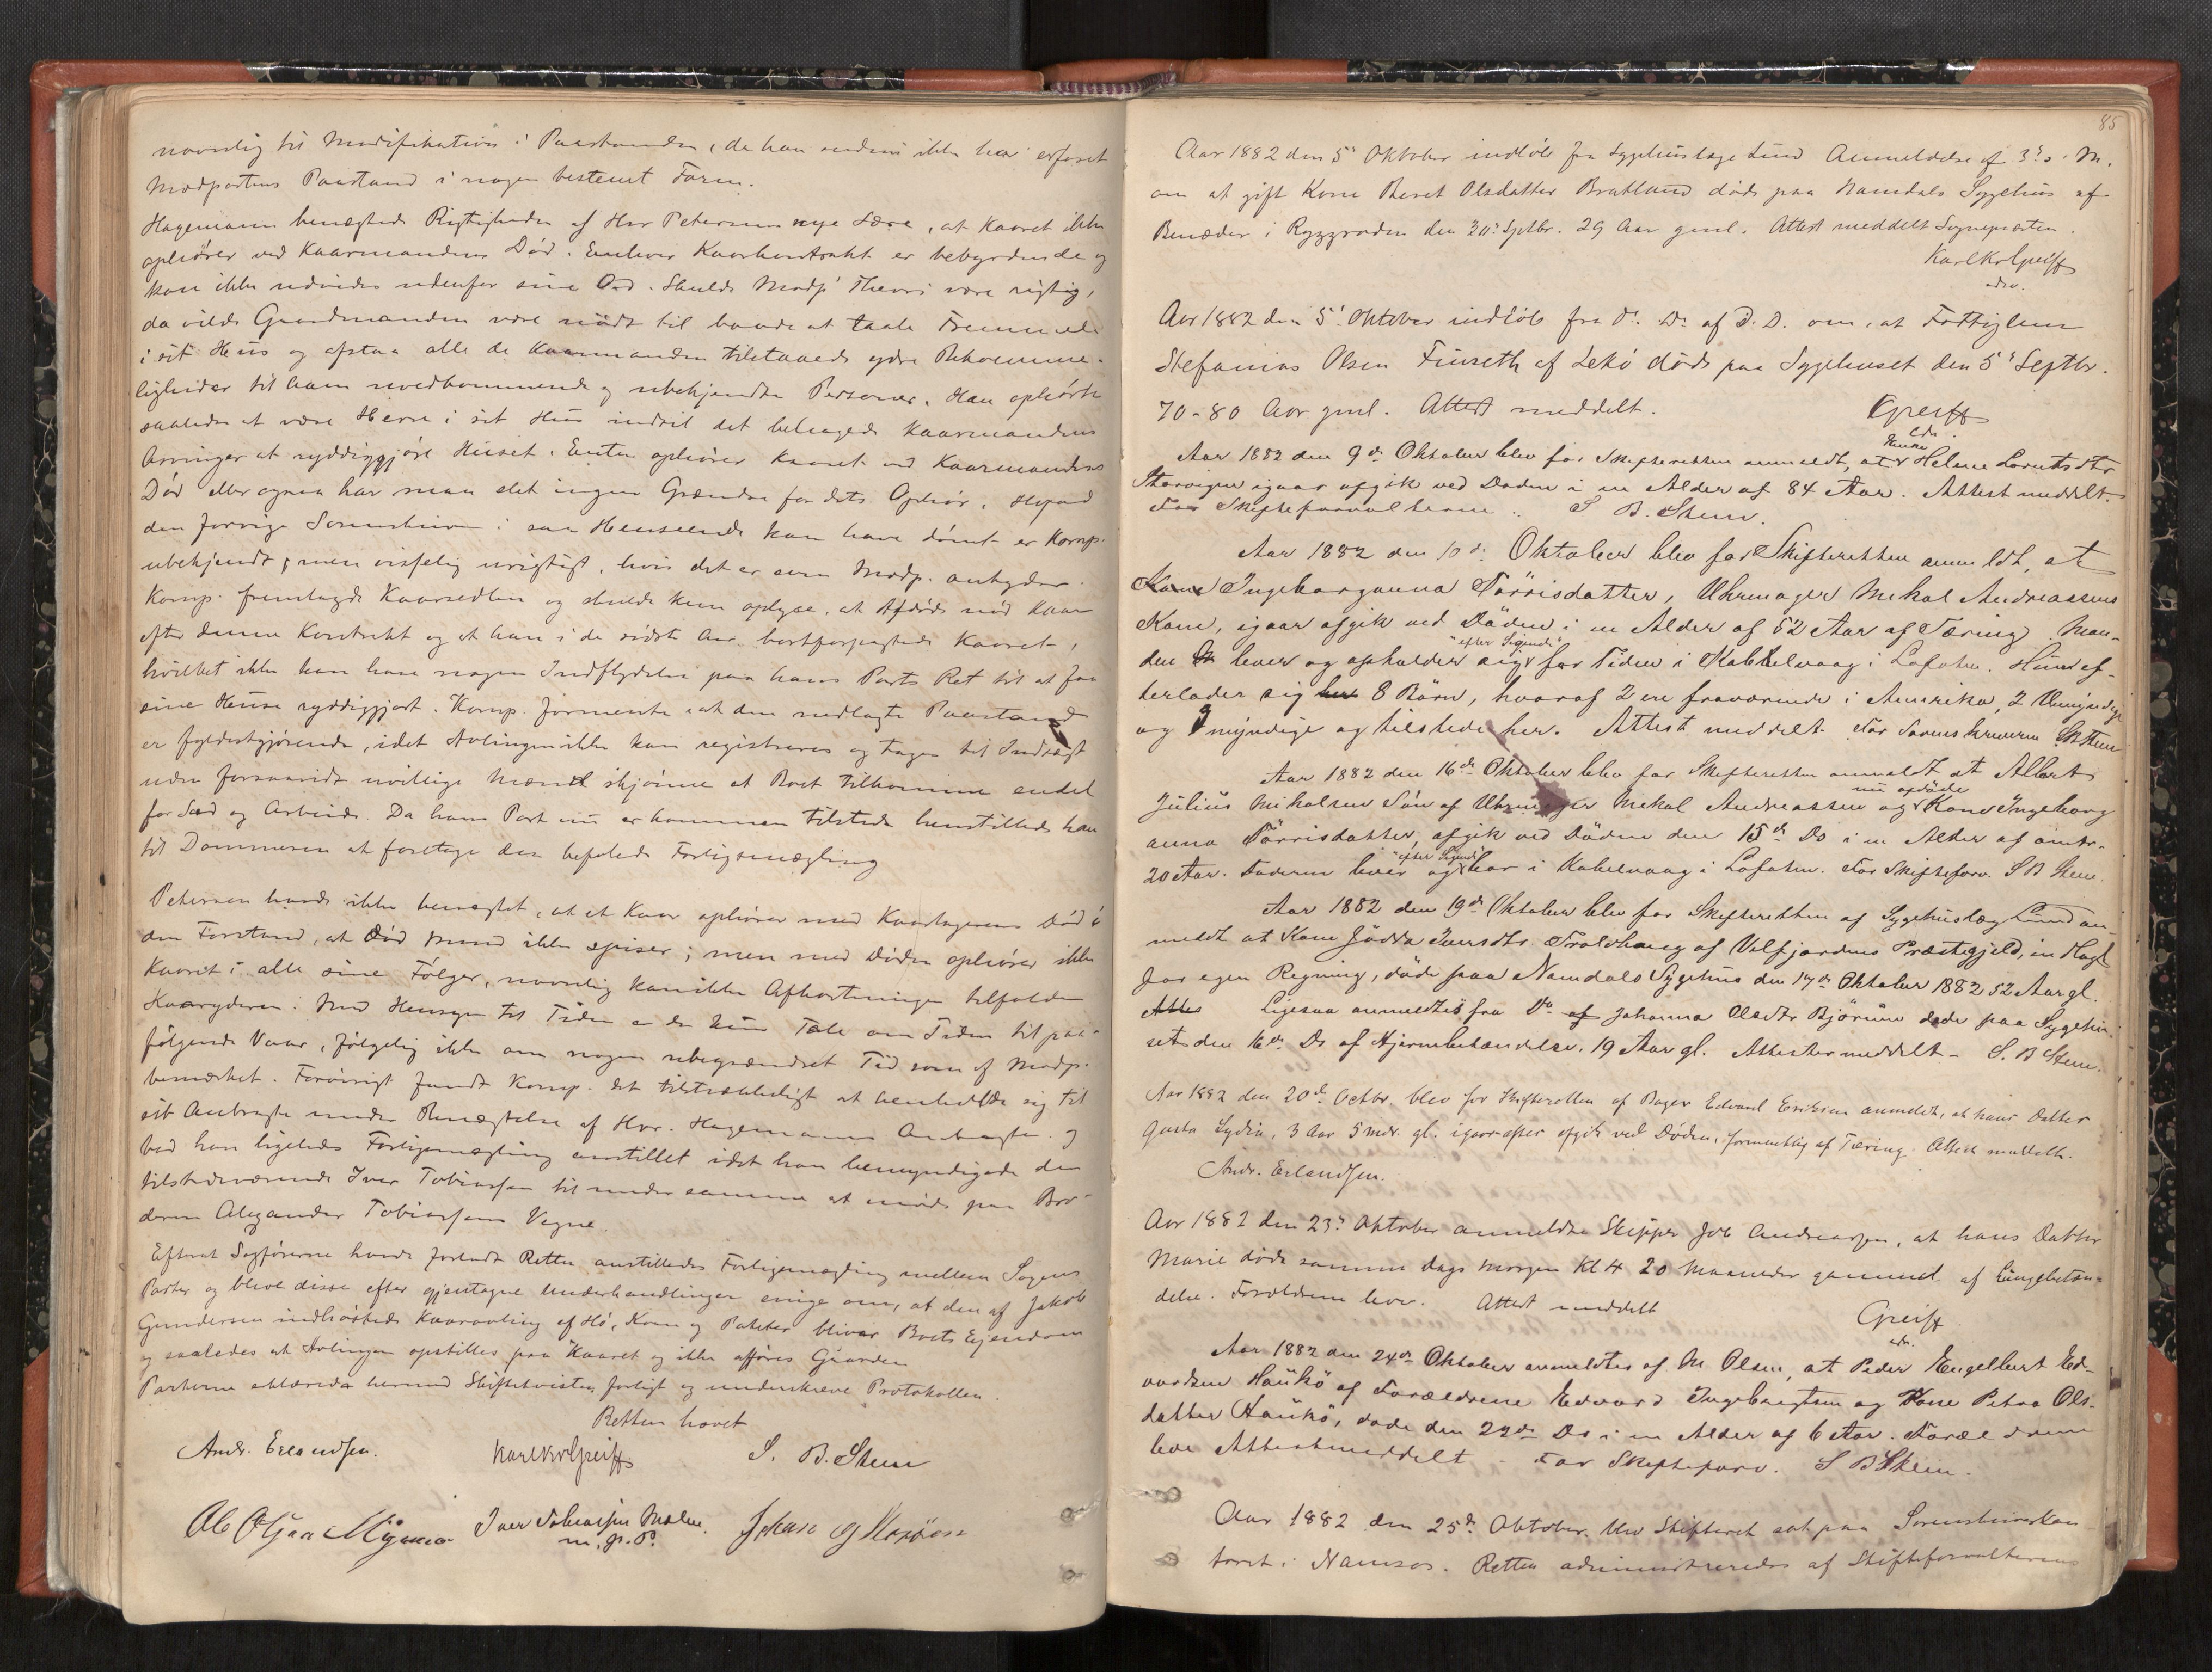 navnlig til Modifikation i Paastanden, da han endnu ikke har erfaret
Modpartens Paastand i nogen bestemt Form.
Hagemann benægtede Rigtigheden af Hr Petersens nye Lære, at Kaaret ikke
ophører ved Kaarmandens Død. Enhver Kaarkontrakt er bebyrdende og
kan ikke udvides udenfor sine Ord. Skulde Modp' Theori være rigtig,
da vilde Gaardmanden være nødt til baade at taale Fremmede
i sit Hus og afstaa alle de Kaarmanden tilstaaede ydre Bekvemme-
ligheder til ham uvedkommende og ubekjendte Personer. Han ophørte
saaledes at være Herre i sit Hus indtil det behagede Kaarmandens
Arvinger at ryddiggjøre Huset. Enten ophører Kaaret ved Kaarmandens
Død eller ogsaa har man slet ingen Grændse for dets Ophør. Hvad
den forrige Sorenskriver i saa Henseende kan have dømt er Komp.
ubekjendt, men visselig urigtigt, hvis det er som Modp. antyder.
Komp. fremlagde Kaarsedlen og skulde kun oplyse, at Afdøde nød Kaar
efter denne Kontrakt og at han i de sidste Aar bortforpagtede Kaaret,
hvilket ikke kan have nogen Indflydelse paa hans Parts Ret til at faa
sine Huse ryddiggjort. Komp. formente at den nedlagte Paastand
er fyldestgjørende, idet Avlingen ikke kan registreres og tages til Indtægt
uden forsaavidt uvillige Mænd skjønne at Boet tilkomme endel
for Sæd og Arbeide. Da hans Part nu er kommen tilstede henstillede han
til Dommeren at foretage den befalede Forligsmægling
Petersen havde ikke benægtet, at et Kaar ophører med Kaartagerens Død i
den Forstand, at død Mand ikke spiser; men med Døden ophører ikke
Kaaret i alle sine Følger, navnlig kan ikke Afkortningen tilfalde
Kaaryderen. Med Hensyn til Tiden er der kun Tale om Tiden til paa-
følgende Vaar, følgelig ikke om nogen ubegrændset Tid som af Modp.
bemærket. Forøvrigt fandt Komp. det tilstrækkeligt at henholde sig til
sit Anbragte under Benægtelse af Hr. Hagemanns Anbragte og
bad han ligeledes Forligsmægling anstillet idet han bemyndigede den
tilstedeværende Iver Tobiassen til under samme at møde paa Bro-
deren Alexander Tobiassens Vegne.
Efterat Sagførerne havde forladt Retten anstilledes Forligsmægling mellem Sagens
Parter og bleve disse efter gjentagne Underhandlinger enige om, at den af Jakob
Gundersen indhøstede Kaaravling af Hø, Korn og Poteter bliver Boets Eiendom
og saaledes at Avlingen opstilles paa Kaaret og ikke afføres Gaarden
Parterne erklærede hermed Skiftetvisten forligt og underskreve Protokollen.
Retten hævet
Andr. Erlandsen. KarlKrGreiff S. B. Stene
Ole Olsen Iver Tobiassen Malm. Johan
m. p. P.
85
Aar 1882 den 5' Oktober indløb fra Sygehuslæge Lund Anmeldelse af 3' s. M.
om at gift Kone Beret Olsdatter Bratland døde paa Namdals Sygehus af
Benæder i Ryggraden den 30' Septbr. 29 Aar gml. Attest meddelt Sognepræsten.
KarlKrGreiff
edsv.
Aar 1882 den 5' Oktober indløb fra Do. Do. af D. D. om, at Fattiglem
Stefanias Olsen Finseth af Lekø døde paa Sygehuset den 5' Septbr.
70-80 Aar gml. Attest meddelt. Greiff
edsv.
Enken
Aar 1882 den 9de Oktober blev for Skifteretten anmeldt, at Helene Lorntsdtr
Storvigen igaar afgik ved Døden i en Alder af 84 Aar. Attest meddelt.
For Skifteforvalteren. S B. Stene.
Aar 1882 den 10de Oktober blev for Skifteretten anmeldt, at
Kone Ingeboranna Tørrisdatter, Uhrmager Mekal Andreassens
Kone, igaar afgik ved Døden i en Alder af 52 Aar af Tæring. Man-
"efter Sigende"
den lever og opholder sig for Tiden i Kabbelvaag i Lofoten. Hun ef-
terlader sig her 8 Børn, hvoraf 2 ere fraværende i Amerika, 2 Umyndige
og myndige og tilstede her. Attest meddelt. For Sorenskriveren SBStene
Aar 1882 den 16de Oktober blev for Skifteretten anmeldt at Albert
nu afdøde
Julius Mekalsen Søn af Uhrmager Mekal Andreassen og Kone Ingeborg
anna Tørrisdatter, afgik ved Døden den 15de Ds i en Alder af omtr.
"efter Sigende"
20 Aar. Faderen lever og bor i Kabelvaag i Lofoten. For Skifteforv. S B Stene.
Aar 1882 den 19de Oktober blev for Skifteretten af Sygehuslæge Lund an-
meldt at Kone Jødda Iversdtr Troldhaug af Velfjordens Præstegjeld,
for egen Regning, døde paa Namdals Sygehus den 17de Oktober 1882 52 Aar gl.
Attes Ligesaa anmeldtes fra Do af Johanna Olsdtr Bjørum døde paa Sygehu-
set den 16de Ds af Hjernebetændelse. 19 Aar gl. Attester meddelt. S. B Stene.
Aar 1882 den 20de Octbr. blev for Skifteretten af Bager Edvard Eriksen anmeldt, at hans Datter
Gusta Lydia, 3 Aar 5 Mdr. gl. igaaraftes afgik ved Døden, formentlig af Tæring. Attest meddelt.
Andr. Erlandsen.
Aar 1882 den 23' Oktober anmeldte Skipper Job Andreassen, at hans Datter
Marie døde samme Dags Morgen Kl 4 20 Maaneder gammel af Lungebetæn-
delse. Forældrene lever. Attest meddelt Greiff
edsv.
Aar 1882 den 24de Oktober anmeldtes af M. Olsen, at Peder Engelbert Ed-
vardsen Haukø af Forældrene Edvard Ingebrigtsen og Kone Petra Ols-
datter Haukø, døde den 22de Ds i en Alder af 6 Aar. Forældrene
leve Attest meddelt - For Skifteforv. S B Stene.
Aar 1882 den 25de Oktober blev Skifteret sat paa Sorenskriverkon
toret i Namsos. Retten administreredes af Skifteforvalterens